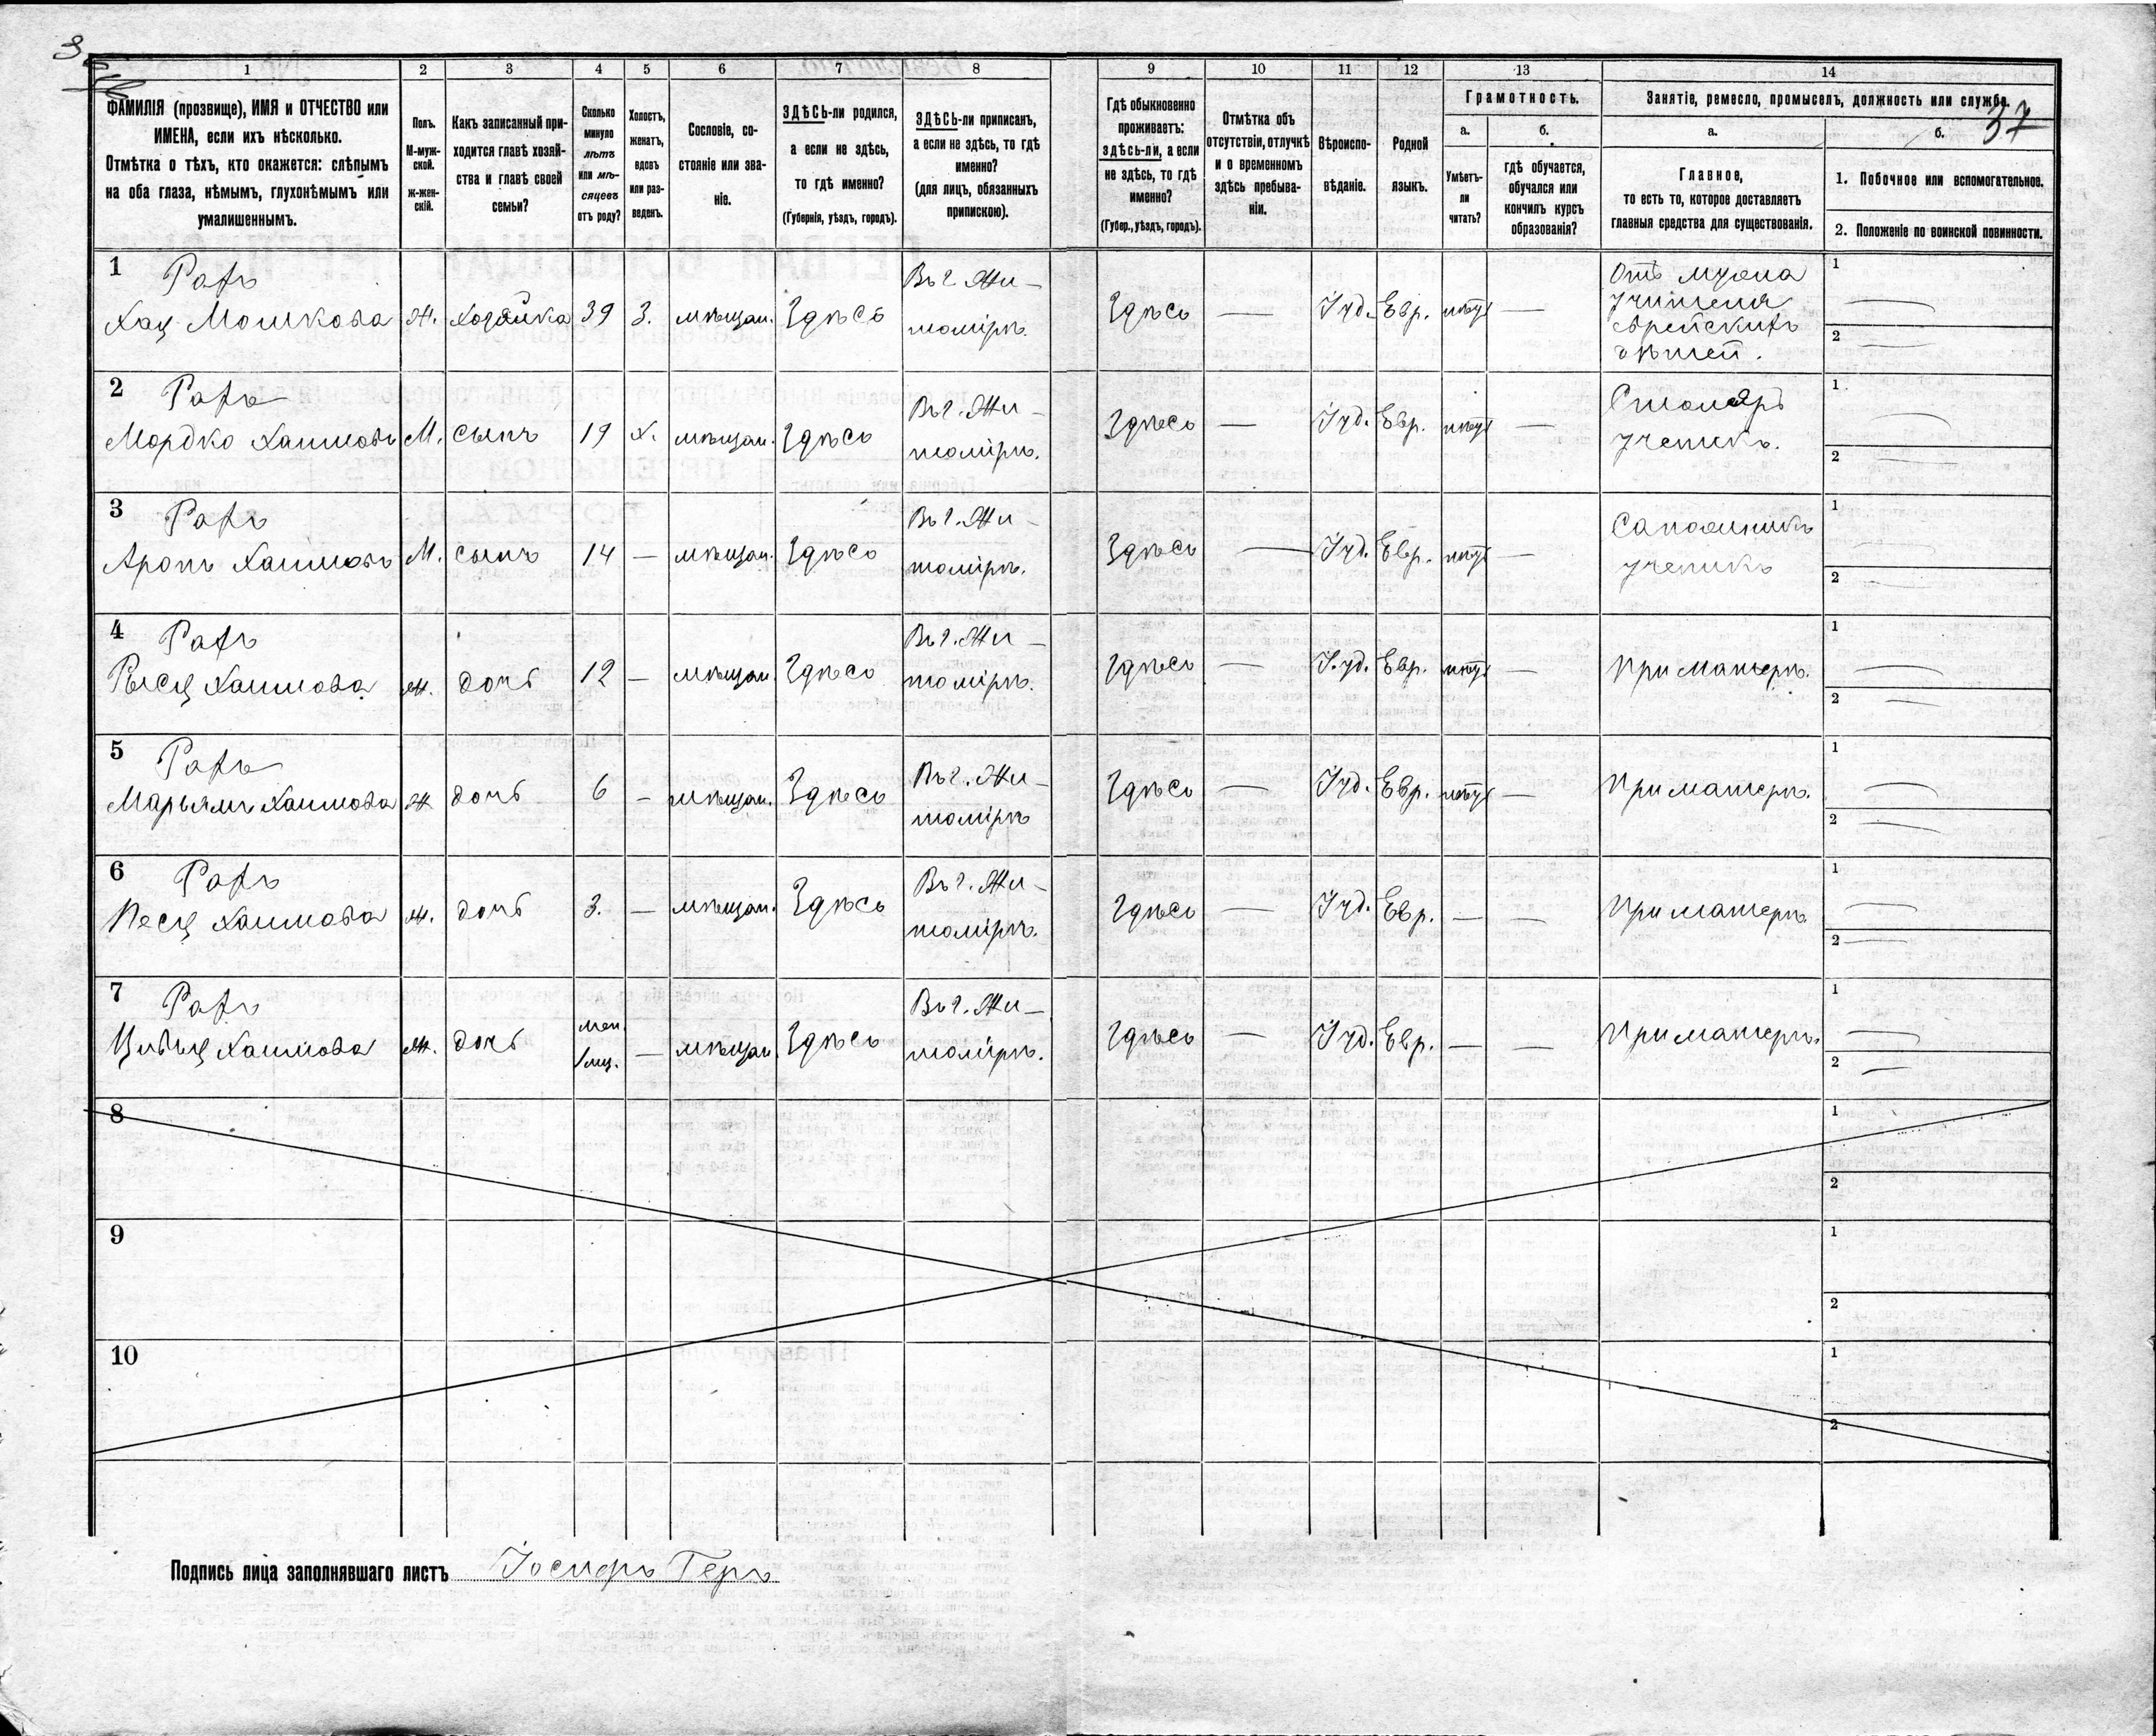 1 2 3 4 5 6 7 8 9 10 11 12 13 14
ФАМИЛІЯ (прозвище), ИМЯ и ОТЧЕСТВО или
ИМЕНА, если ихъ нѣсколько.
Отмѣтка о тѣхъ, кто окажется: слѣпымъ
на оба глаза, нѣмымъ, глухонѣмымъ или
умалишеннымъ.
Полъ.
М-муж-
ской.
ж-жен-
скій.
Какъ записанный при-
ходится главѣ хозяй-
ства и главѣ своей
семьи?
Сколько
минуло
лѣтъ
или мѣ-
сяцевъ
отъ роду?
Холостъ,
женатъ,
вдовъ
или раз-
веденъ.
Сословіе, со-
стояніе или зва-
ніе.
ЗДѢСЬ-ли родился,
а если не здѣсь,
то гдѣ именно?
(Губернія, уѣздъ, городъ).
ЗДѢСЬ-ли приписанъ,
а если не здѣсь, то гдѣ
именно?
(для лицъ, обязанныхъ
припискою).
Гдѣ обыкновенно
проживаетъ:
здѣсь-ли, а если
не здѣсь, то гдѣ
именно?
(Губер., уѣздъ, городъ).
Отмѣтка объ
отсутствіи, отлучкѣ
и о временномъ
здѣсь пребыва-
ніи.
Вѣроиспо-
вѣданіе.
Родной
языкъ.
Грамотность.
а.
Умѣетъ-
ли
читать?
б.
гдѣ обучается,
обучался или
кончилъ курсъ
образованія?
Занятіе, ремесло, промыселъ, должность или служба.
37
а.
Главное,
то есть то, которое доставляетъ
главныя средства для существованія.
б.
1. Побочное или вспомогательное.
2. Положеніе по воинской повинности.
1
Мошкова Ж. Хозяйка 39 З. мѣщан. Здѣсь
Въ г. Жи-
томірѣ.
Здѣсь — Іуд. Евр. —
Отъ мужа
учителя
еврейскихъ
дѣтей.
1 —
2 —
2
Мордко Хаимовъ М. сынъ 19 Х. мѣщан. Здѣсь
Въ г. Жи-
томірѣ.
Здѣсь — Іуд. Евр. —
Столяръ
ученикъ.
1 —
2 —
3
Аронъ Хаимовъ М. сынъ 14 — мѣщан. Здѣсь
Въ г. Жи-
томірѣ.
Здѣсь — Іуд. Евр. —
Сапожникъ
ученикъ
1 —
2 —
4
Хаимова Ж. дочь 12 — мѣщан. Здѣсь
Въ г. Жи-
томірѣ.
Здѣсь — Іуд. Евр. —
При матерѣ.
1 —
2 —
5
Марьямъ Хаимова Ж. дочь 6 — мѣщан. Здѣсь
Въ г. Жи-
томірѣ
Здѣсь — Іуд. Евр. —
При матерѣ.
1 —
2 —
6
Хаимова Ж. дочь 3. — мѣщан. Здѣсь
Въ г. Жи-
томірѣ.
Здѣсь — Іуд. Евр. — —
При матерѣ
1 —
2 —
7
Хаимова Ж. дочь — мѣщан. Здѣсь
Въ г. Жи-
томірѣ.
Здѣсь — Іуд. Евр. — —
При матерѣ.
1 —
2 —
8
1
2
9
1
2
10
1
2
Подпись лица заполнявшаго листъ Іосифъ Геръ